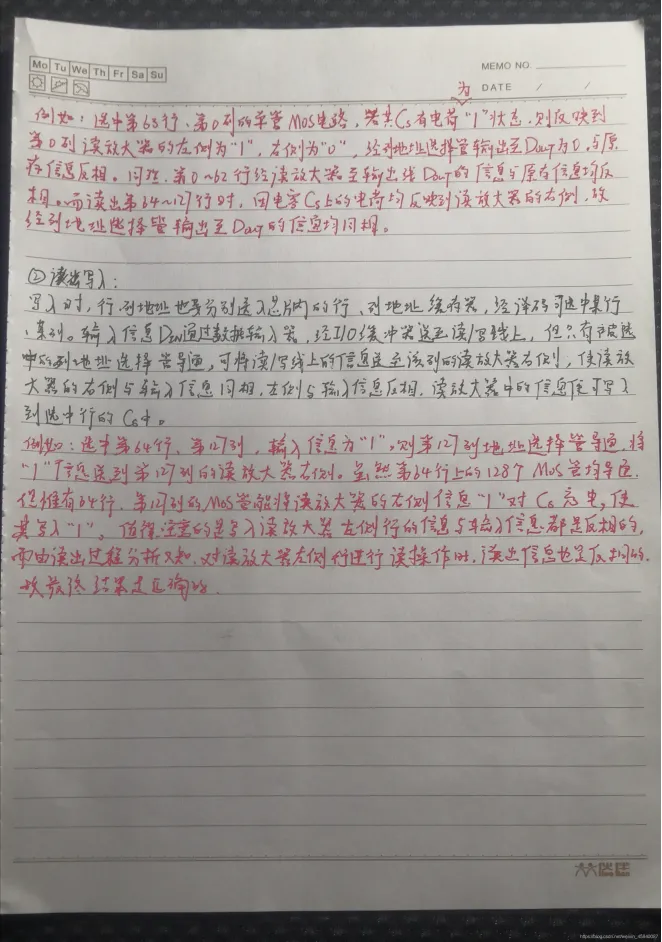 Mo Tu We Th Fr Sa Su
MEMO NO.
DATE / /
为
例如：选中第63行、第0列的单管MOS电路，若其Cs有电荷"1"状态，则反映到
第0列读放大器的左侧为"1"，右侧为"0"，经列地址选择管输出至Dout为0，与原
存信息反相。同理，第0~62行经读放大器至输出线Dout的信息与原存信息均反
相。而读出第64~127行时，因电容Cs上的电荷均反映到读放大器的右侧，故
经列地址选择管输出至Dout的信息均同相。
②读出写入：
写入时，行、列地址也要分别送入芯片内的行、列地址缓存器，经译码可选中某行
、某列。输入信息DIN通过数据输入器，经I/O缓冲器送至读/写线上，但只有被选
中的列地址选择管导通，可将读/写线上的信息送至该列的读放大器右侧，使读放
大器的右侧与输入信息同相，左侧与输入信息反相，读放大器中的信息便可写入
到选中行的Cs中。
例如：选中第64行、第127列，输入信息为"1"，则第127列地址选择管导通，将
"1"信息送到第127列的读放大器右侧。虽然第64行上的128个MOS管均导通，
但唯有64行、第127列的MOS管能将读放大器的右侧信息"1"对Cs充电，使
其写入"1"。值得注意的是写入读放大器左侧行的信息与输入信息都是反相的，
而由读出过程分析又知，对读放大器左侧行进行读操作时，读出信息也是反相的，
故最终结果是正确的.